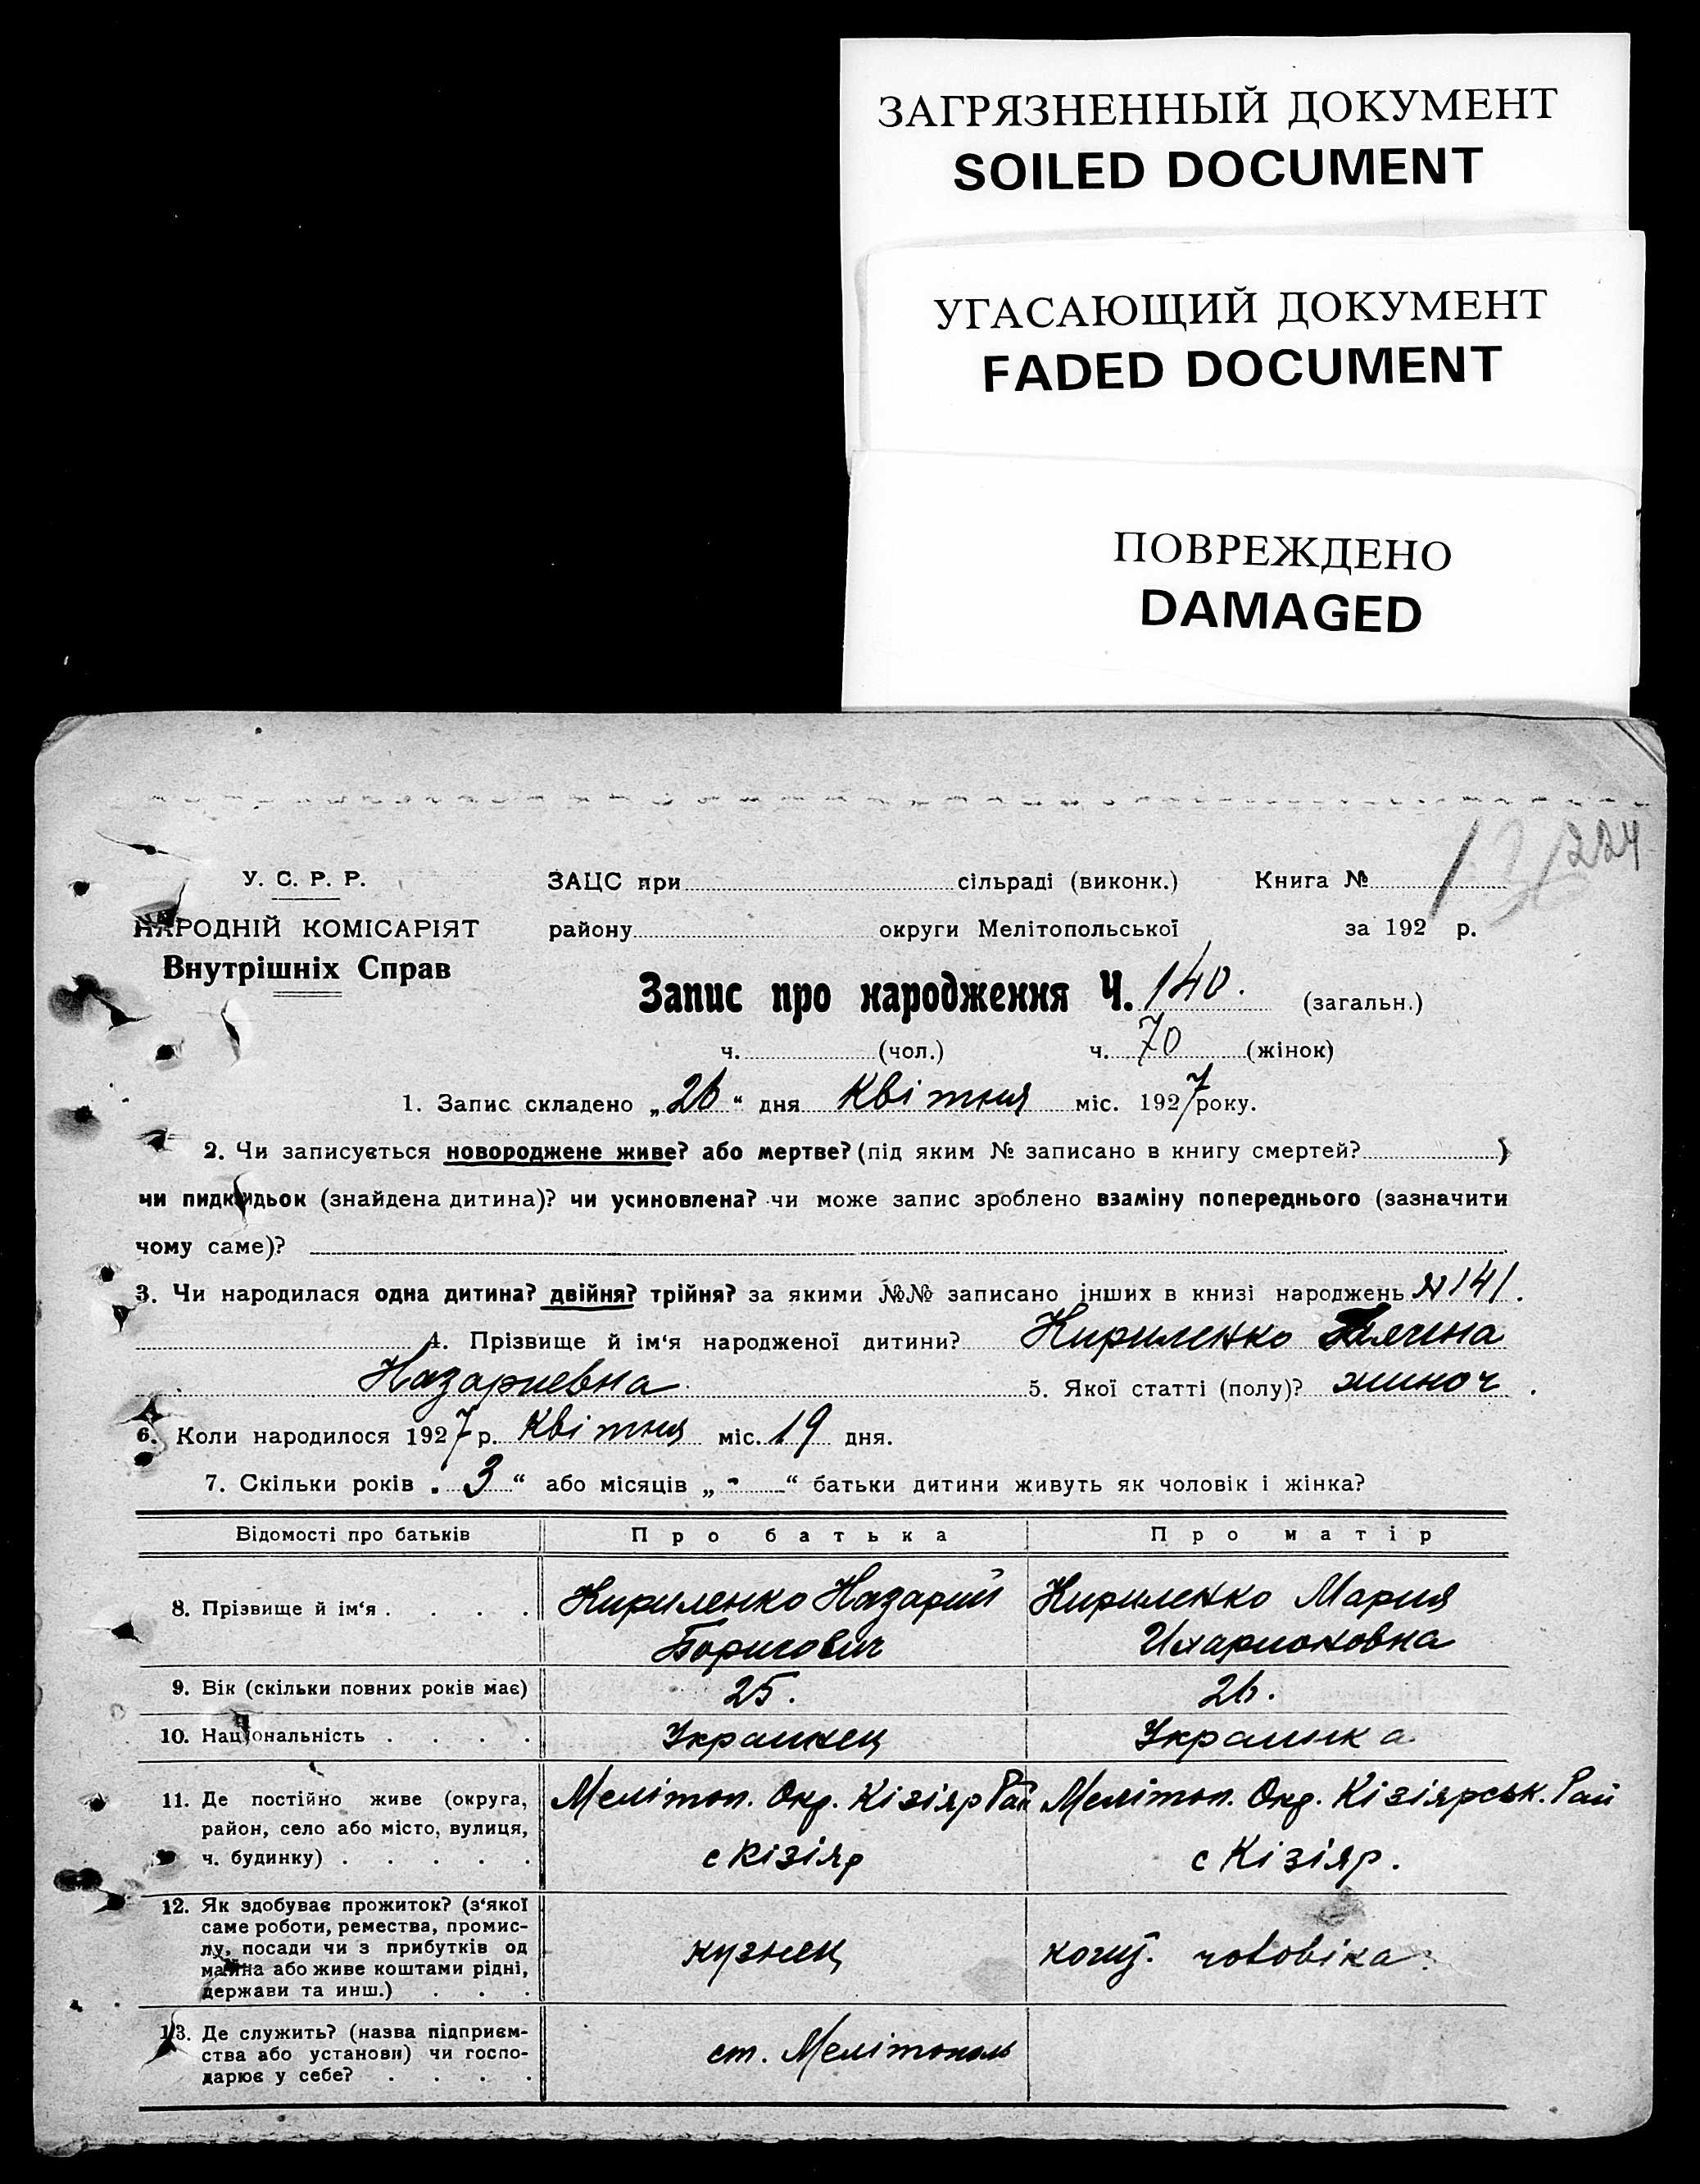 ЗАГРЯЗНЕННЫЙ ДОКУМЕНТ
SOILED DOCUMENT
УГАСАЮЩИЙ ДОКУМЕНТ
FADED DOCUMENT
ПОВРЕЖДЕНО
DAMAGED
224
У. С. Р. Р.
НАРОДНІЙ КОМІСАРІЯТ
Внутрішніх Справ
ЗАЦС при сільраді (виконк.) Книга №
району округи Мелітопольської за 192 р.
Запис про народження Ч. 140. (загальн.)
ч. (чол.) ч. 70 (жінок)
1. Запис складено „26“ дня Квітня міс. 1927 року.
2. Чи записується новороджене живе? або мертве? (під яким № записано в книгу смертей? )
чи пидкидьок (знайдена дитина)? чи усиновлена? чи може запис зроблено взаміну попереднього (зазначити
чому саме)?
3. Чи народилася одна дитина? двійня? трійня? за якими №№ записано інших в книзі народжень N 141.
4. Прізвище й ім‘я народженої дитини? Кириленко
Назариевна 5. Якої статті (полу)? жиноч.
6. Коли народилося 1927 р. Квітня міс. 19 дня.
7. Скільки років „3“ або місяців „-“ батьки дитини живуть як чоловік і жінка?
Відомості про батьків Про батька Про матір
8. Прізвище й ім‘я . . . . Кириленко Назарий Кириленко Мария
Борисович Иларионовна
9. Вік (скільки повних років має) 25. 26.
10. Національність . . . . Украинец Украинка
11. Де постійно живе (округа, Мелітоп. Окр. Кізіяр Рай Мелітоп. Окр. Кізіярськ. Рай
район, село або місто, вулиця,
ч. будинку) . . . . . с Кізіяр с Кізіяр.
12. Як здобуває прожиток? (з‘якої
саме роботи, ремества, промис-
лу, посади чи з прибутків од кузнец кошт. чоловіка.
майна або живе коштами рідні,
держави та инш.) . . .
13. Де служить? (назва підприєм-
ства або установи) чи госпо- ст. Мелітополь
дарює у себе? . . . .